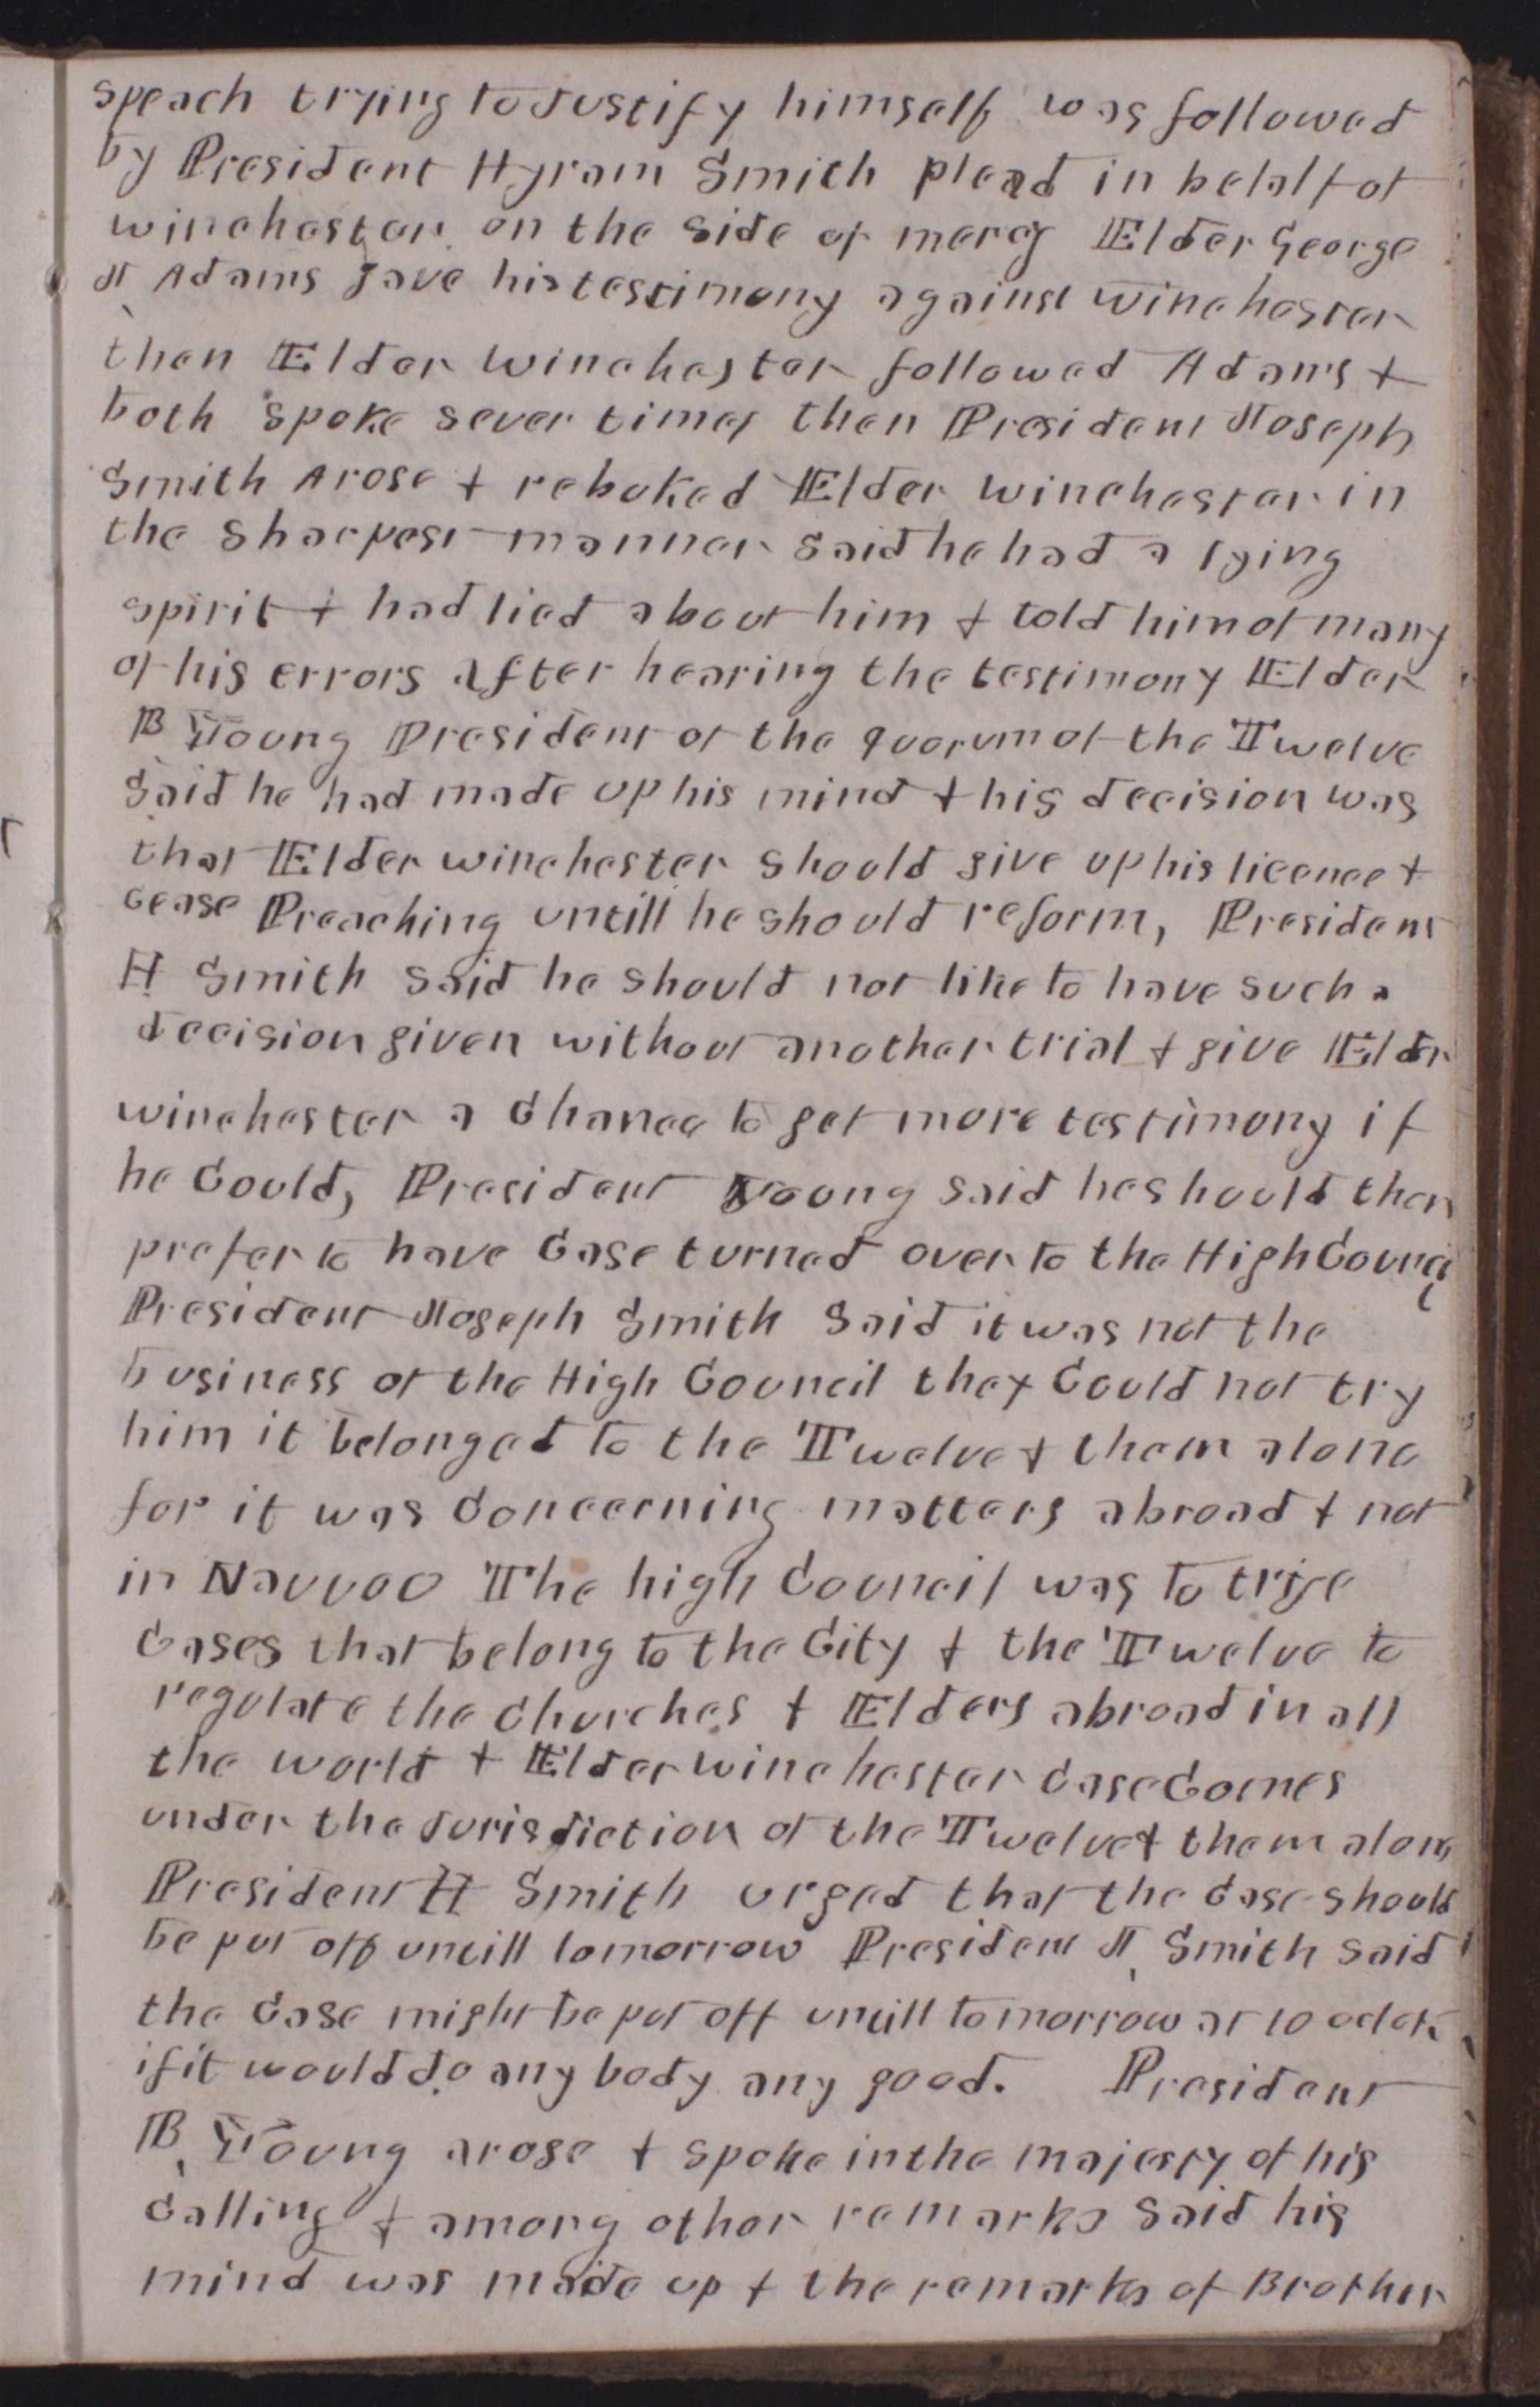 speach trying to Justify himself was followed
by President Hyram Smith plead in behalf of
winchester on the side of mercy Elder George
J Adams gave his testimony against winchester
then Elder winchester followed Adams &
both spoke sever times then President Joseph
Smith Arose & rebuked Elder winchester in
the sharpest manner said he had a lying
spirit & had lied about him & told him of many
of his errors After hearing the testimony Elder
B Young President of the quorum of the Twelve
Said he had made up his mind & his decision was
that Elder winchester should give up his licence &
cease Preaching untill he should reform, President
H Smith said he should not like to have such a
decision given without another trial & give Elder
winchester a Chance to get more testimony if
he Could, President Young said he shoould then
prefer to have Case turned over to the High Council
President Joseph Smith said it was not the
business of the High Council they Could not try
him it belonged to the Twelve & them alone
for it was Concerning matters abroad & not
in Nauvoo The high Council was to trye
Cases that belong to the City & the Twelve to
regulate the Churches & Elders abroad in all
the world & Elder winchester Case Comes
under the Jurisdiction of the Twelve & them alone
President H Smith urged that the Case should
be put off untill tomorrow President J, Smith said
the Case might be put off untill tomorrow at 10 oclok
if it would do any body any good. President
B, Young arose & spoke in the majesty of his
Calling & among other remarks said his
mind was made up & the remarks of Brother